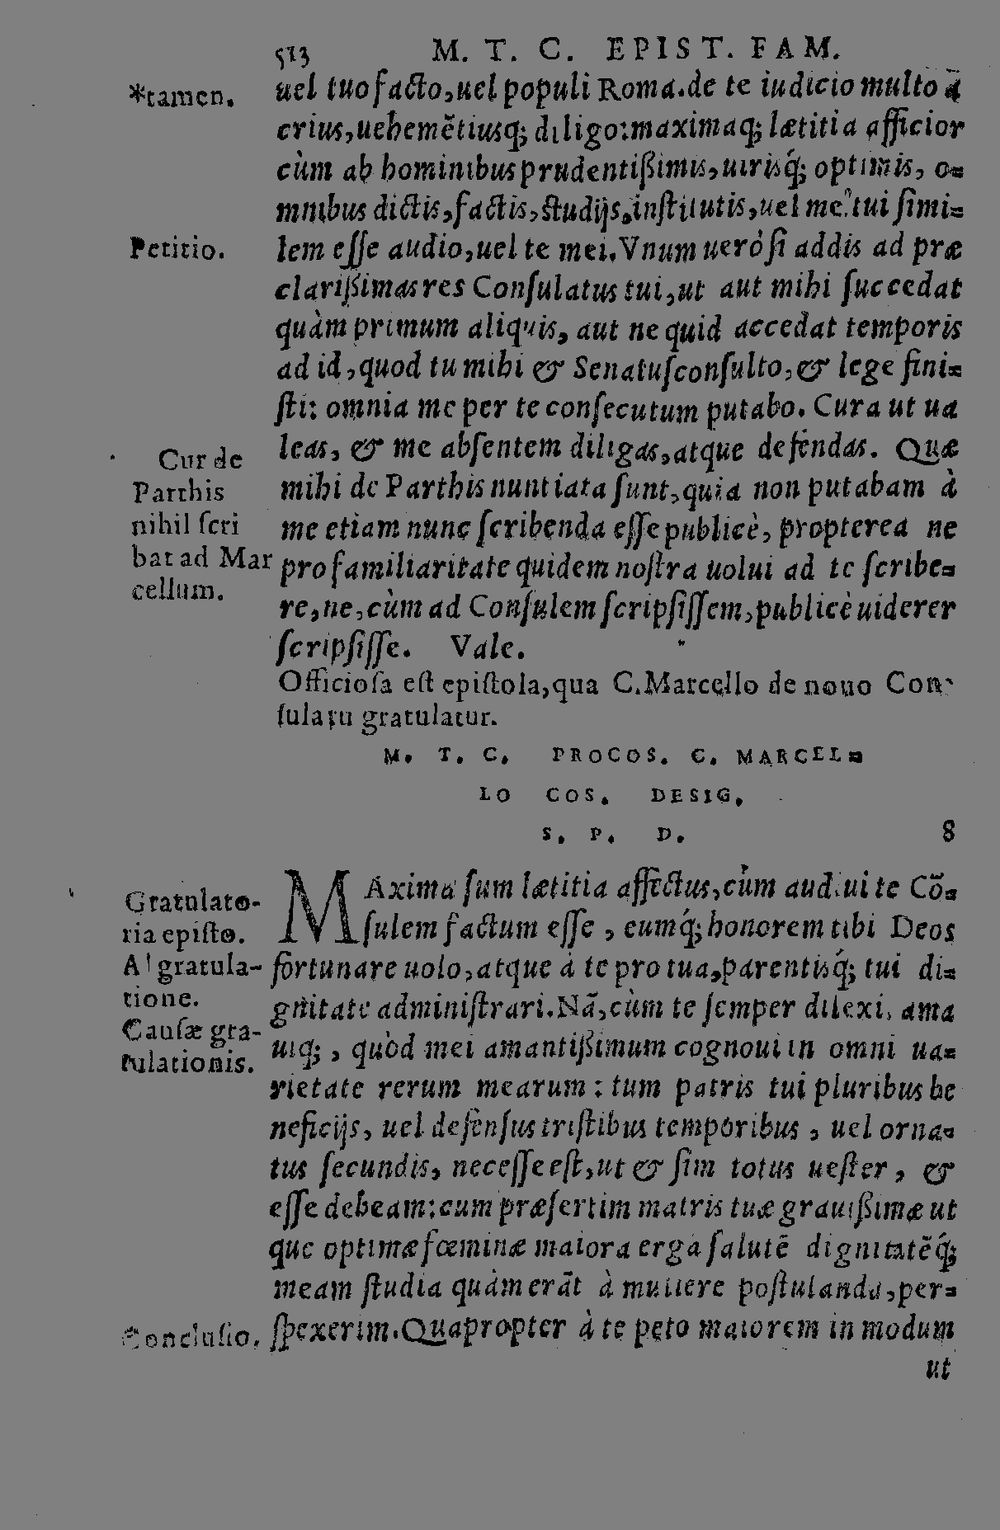 513 M. T. C. EPIST. FAM.
*tamen.
uel tuo facto, uel populi Roma. de te iudicio multo ā
crius, uehemētiusq́; diligo: maximaq́; lætitia afficior
cùm ab hominibus prudentißimis, uirisq́; optimis, o=
mnibus dictis, factis, studijs, institutis, uel me tui simi=
Petitio.
lem esse audio, uel te mei. Vnum uerò si addis ad præ
clarißimas res Consulatus tui, ut aut mihi succedat
quàm primum aliquis, aut ne quid accedat temporis
ad id, quod tu mihi & Senatusconsulto, & lege fini=
sti: omnia me per te consecutum putabo. Cura ut ua
leas, & me absentem diligas, atque defendas. Quæ
Cur de
Parthis
nihil scri
bat ad Mar
cellum.
mihi de Parthis nuntiata sunt, quia non putabam à
me etiam nunc scribenda esse publicè, propterea ne
pro familiaritate quidem nostra uolui ad te scribe=
re, ne, cùm ad Consulem scripsissem, publicè uiderer
scripsisse. Vale.
Officiosa est epistola, qua C. Marcello de nouo Con-
sulatu gratulatur.
M. T. C. PROCOS. C. MARCEL=
LO COS. DESIG.
S. P. D. 8
Gratulato-
ria episto.
A gratula-
tione.
Causæ gra-
tulationis.
MAxima sum lætitia affectus, cùm audiui te Cō=
sulem factum esse, eumq́; honorem tibi Deos
fortunare uolo, atque à te pro tua, parentisq́; tui di=
gnitate administrari. Nā, cùm te semper dilexi, ama
uiq;, quòd mei amantißimum cognoui in omni ua=
rietate rerum mearum: tum patris tui pluribus be
neficijs, uel defensus tristibus temporibus, uel orna=
tus secundis, necesse est, ut & sim totus uester, &
esse debeam: cum præsertim matris tuæ grauißimæ ut
que optimæ fœminæ maiora erga salutē dignitatēq́;
meam studia quàm erāt à muliere postulanda, per=
Conclusio.
spexerim. Quapropter à te peto maiorem in modum
ut